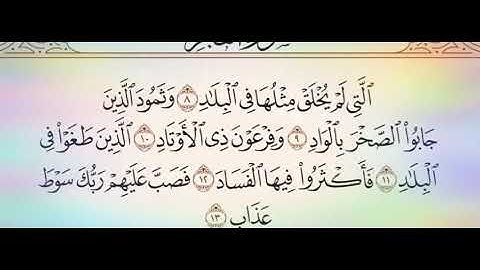 ٱلَّتِى لَمْ يُخْلَقْ مِثْلُهَا فِى ٱلْبِلَـٰدِ ٨ وَثَمُودَ ٱلَّذِينَ
جَابُوا۟ ٱلصَّخْرَ بِٱلْوَادِ ٩ وَفِرْعَوْنَ ذِى ٱلْأَوْتَادِ ١٠ ٱلَّذِينَ طَغَوْا۟ فِى
ٱلْبِلَـٰدِ ١١ فَأَكْثَرُوا۟ فِيهَا ٱلْفَسَادَ ١٢ فَصَبَّ عَلَيْهِمْ رَبُّكَ سَوْطَ
عَذَابٍ ١٣